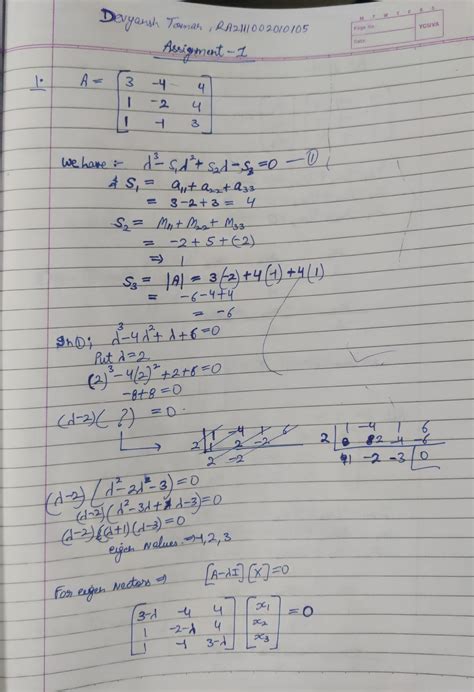 Devyansh Tomar, RA2111002010105
YOUVA
Page No.
Date:
Assignment - 1
1. A = [3 -4 4
1 -2 4
1 -1 3]
we have :- λ³ - S₁λ² + S₂λ - S₃ = 0 — ①
S₁ = a₁₁ + a₂₂ + a₃₃
= 3 - 2 + 3 = 4
S₂ = M₁₁ + M₂₂ + M₃₃
= -2 + 5 + (-2)
⇒ 1
S₃ = |A| = 3(-2) + 4(-1) + 4(1)
= -6 - 4 + 4
= -6
In ①; λ³ - 4λ² + λ + 6 = 0
Put λ = 2
(2)³ - 4(2)² + 2 + 6 = 0
-8 + 8 = 0
(λ-2)( ? ) = 0
2 | 1 -4 1 6
2 -4 -6
1 -2 -3 | 0
(λ-2)(λ² - 2λ - 3) = 0
(λ-2)(λ² - 3λ + λ - 3) = 0
(λ-2)(λ+1)(λ-3) = 0
eigen values ⇒ -1, 2, 3
For eigen vectors ⇒ [A-λI][X] = 0
[3-λ -4 4
1 -2-λ 4
1 -1 3-λ] [x₁
x₂
x₃] = 0